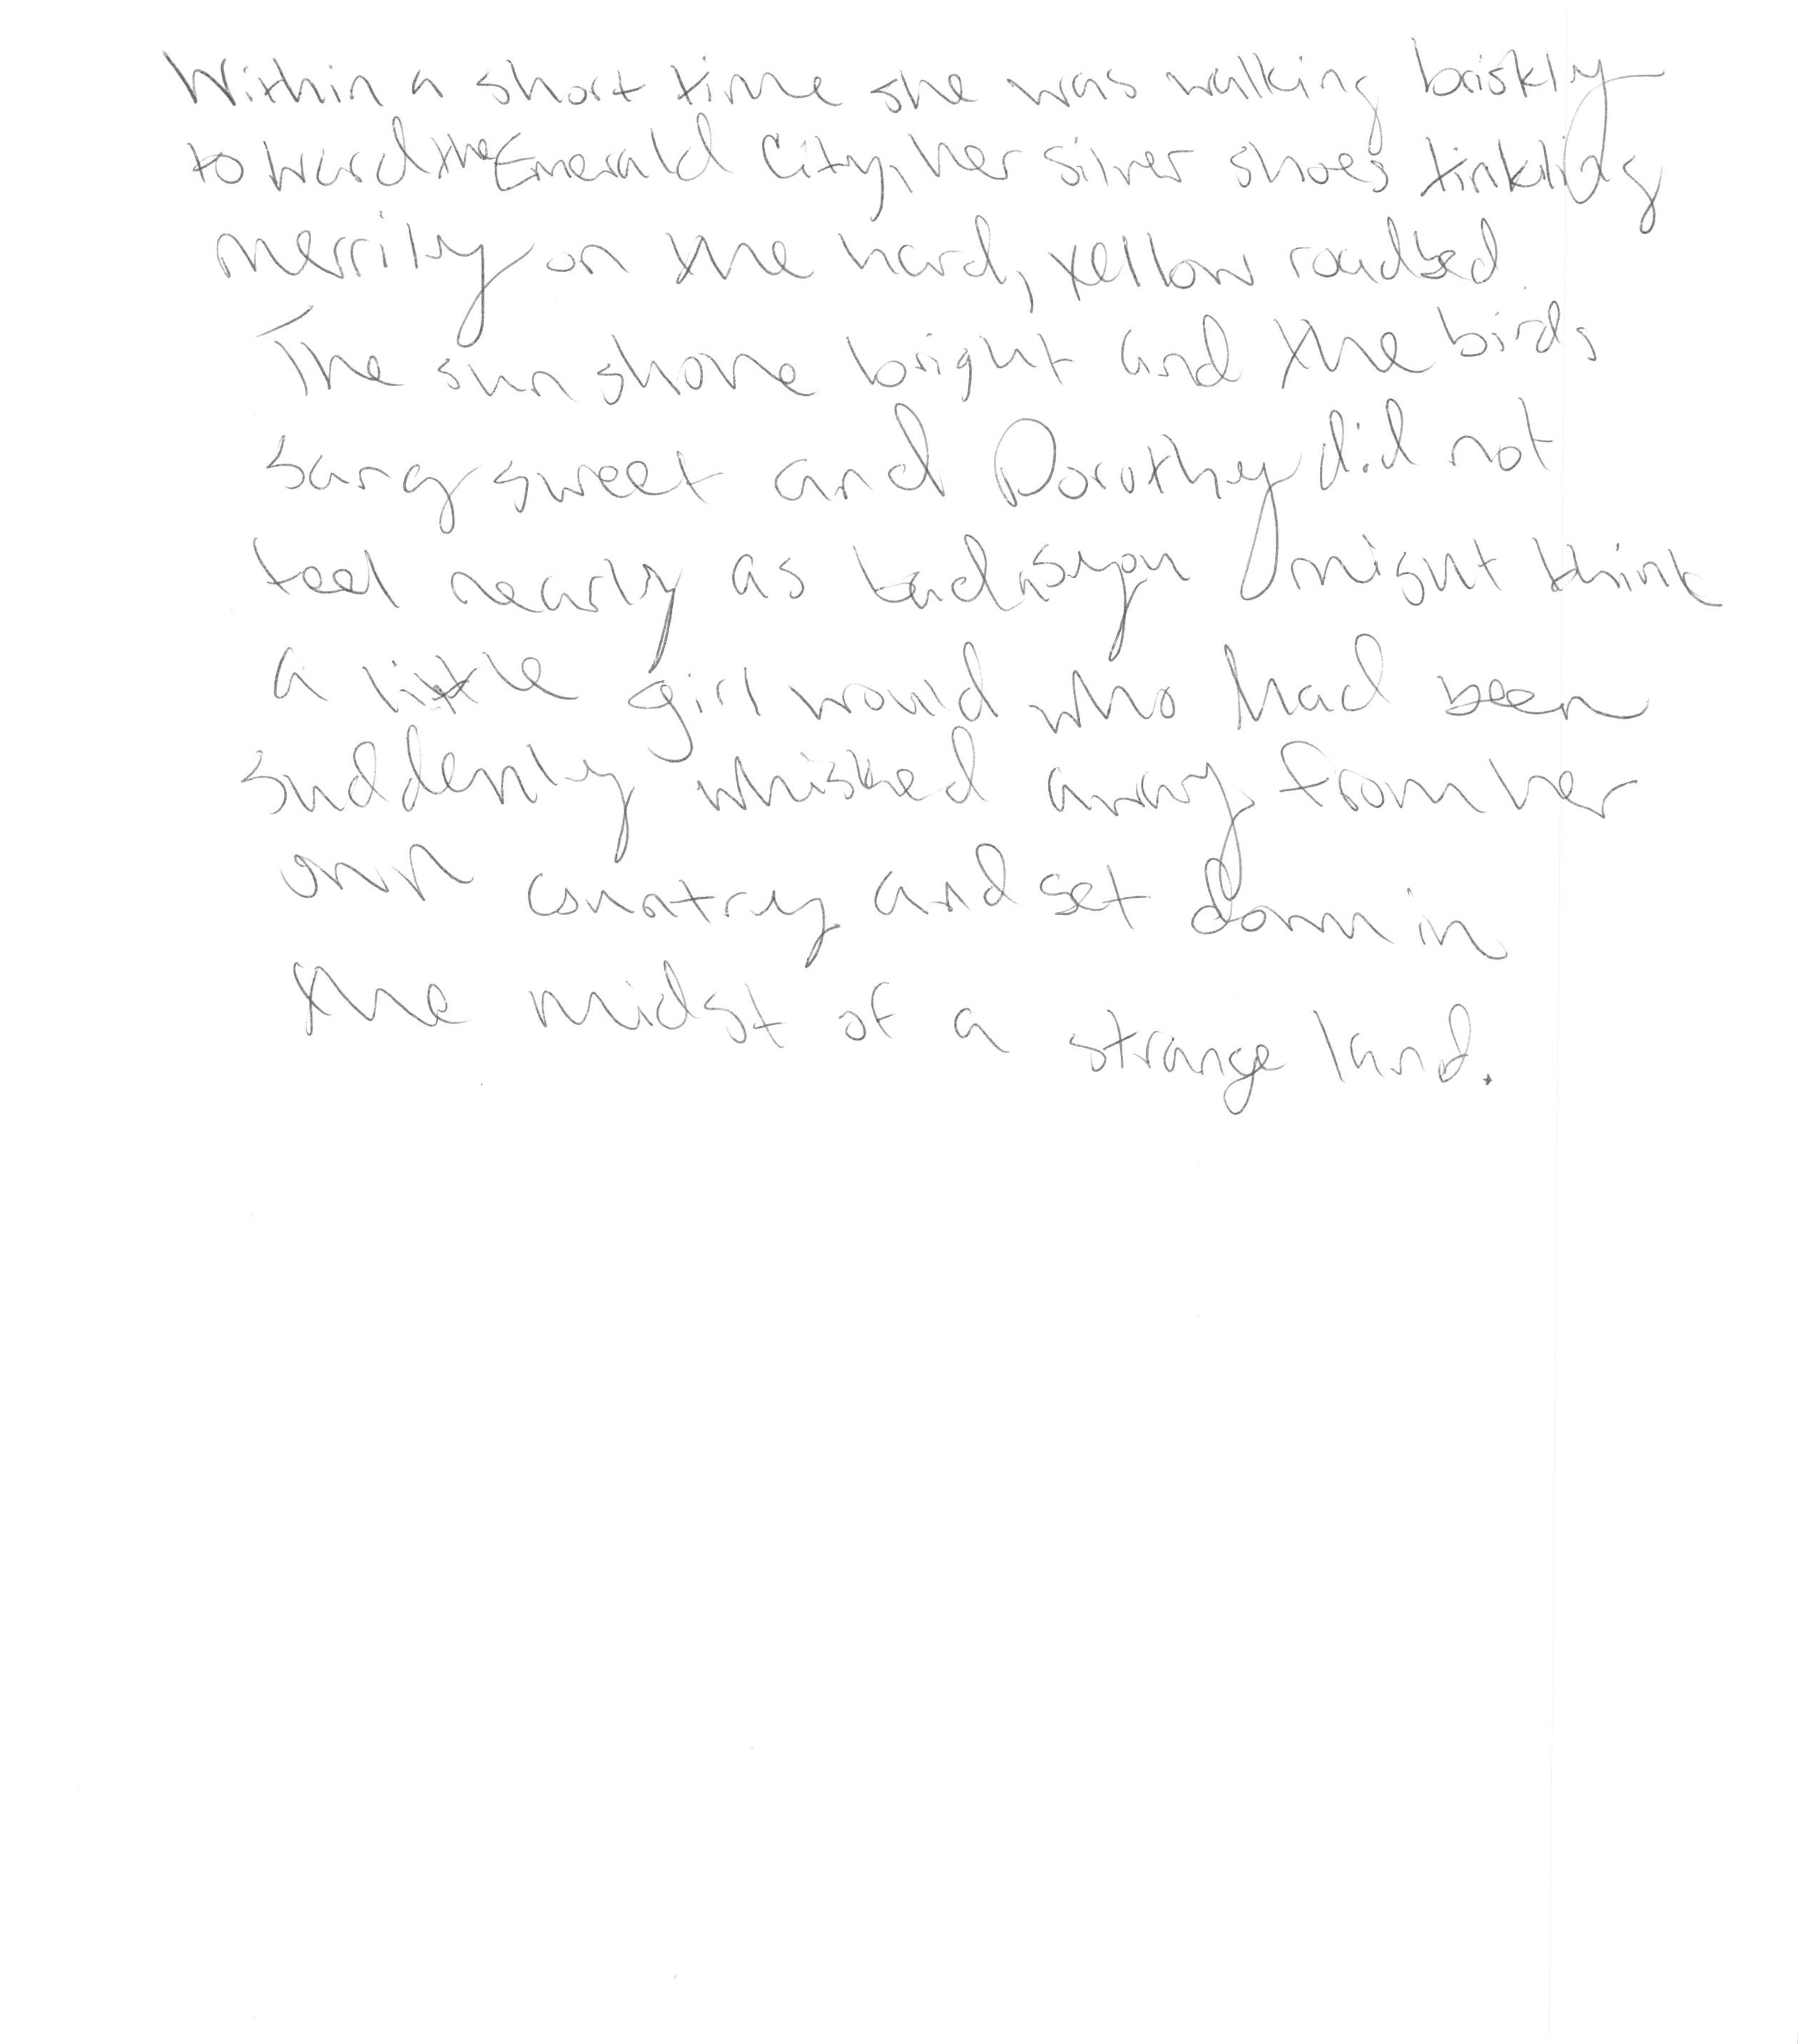 Within a short time she was walking briskly
toward the Emerald City, her silver shoes tinkling
merrily on the hard, yellow roadbed.
The sun shone bright and the birds
sang sweet and Dorothy did not
feel nearly as bad as you might think
a little girl would who had been
suddenly whisked away from her
own country and set down in
the midst of a strange land.